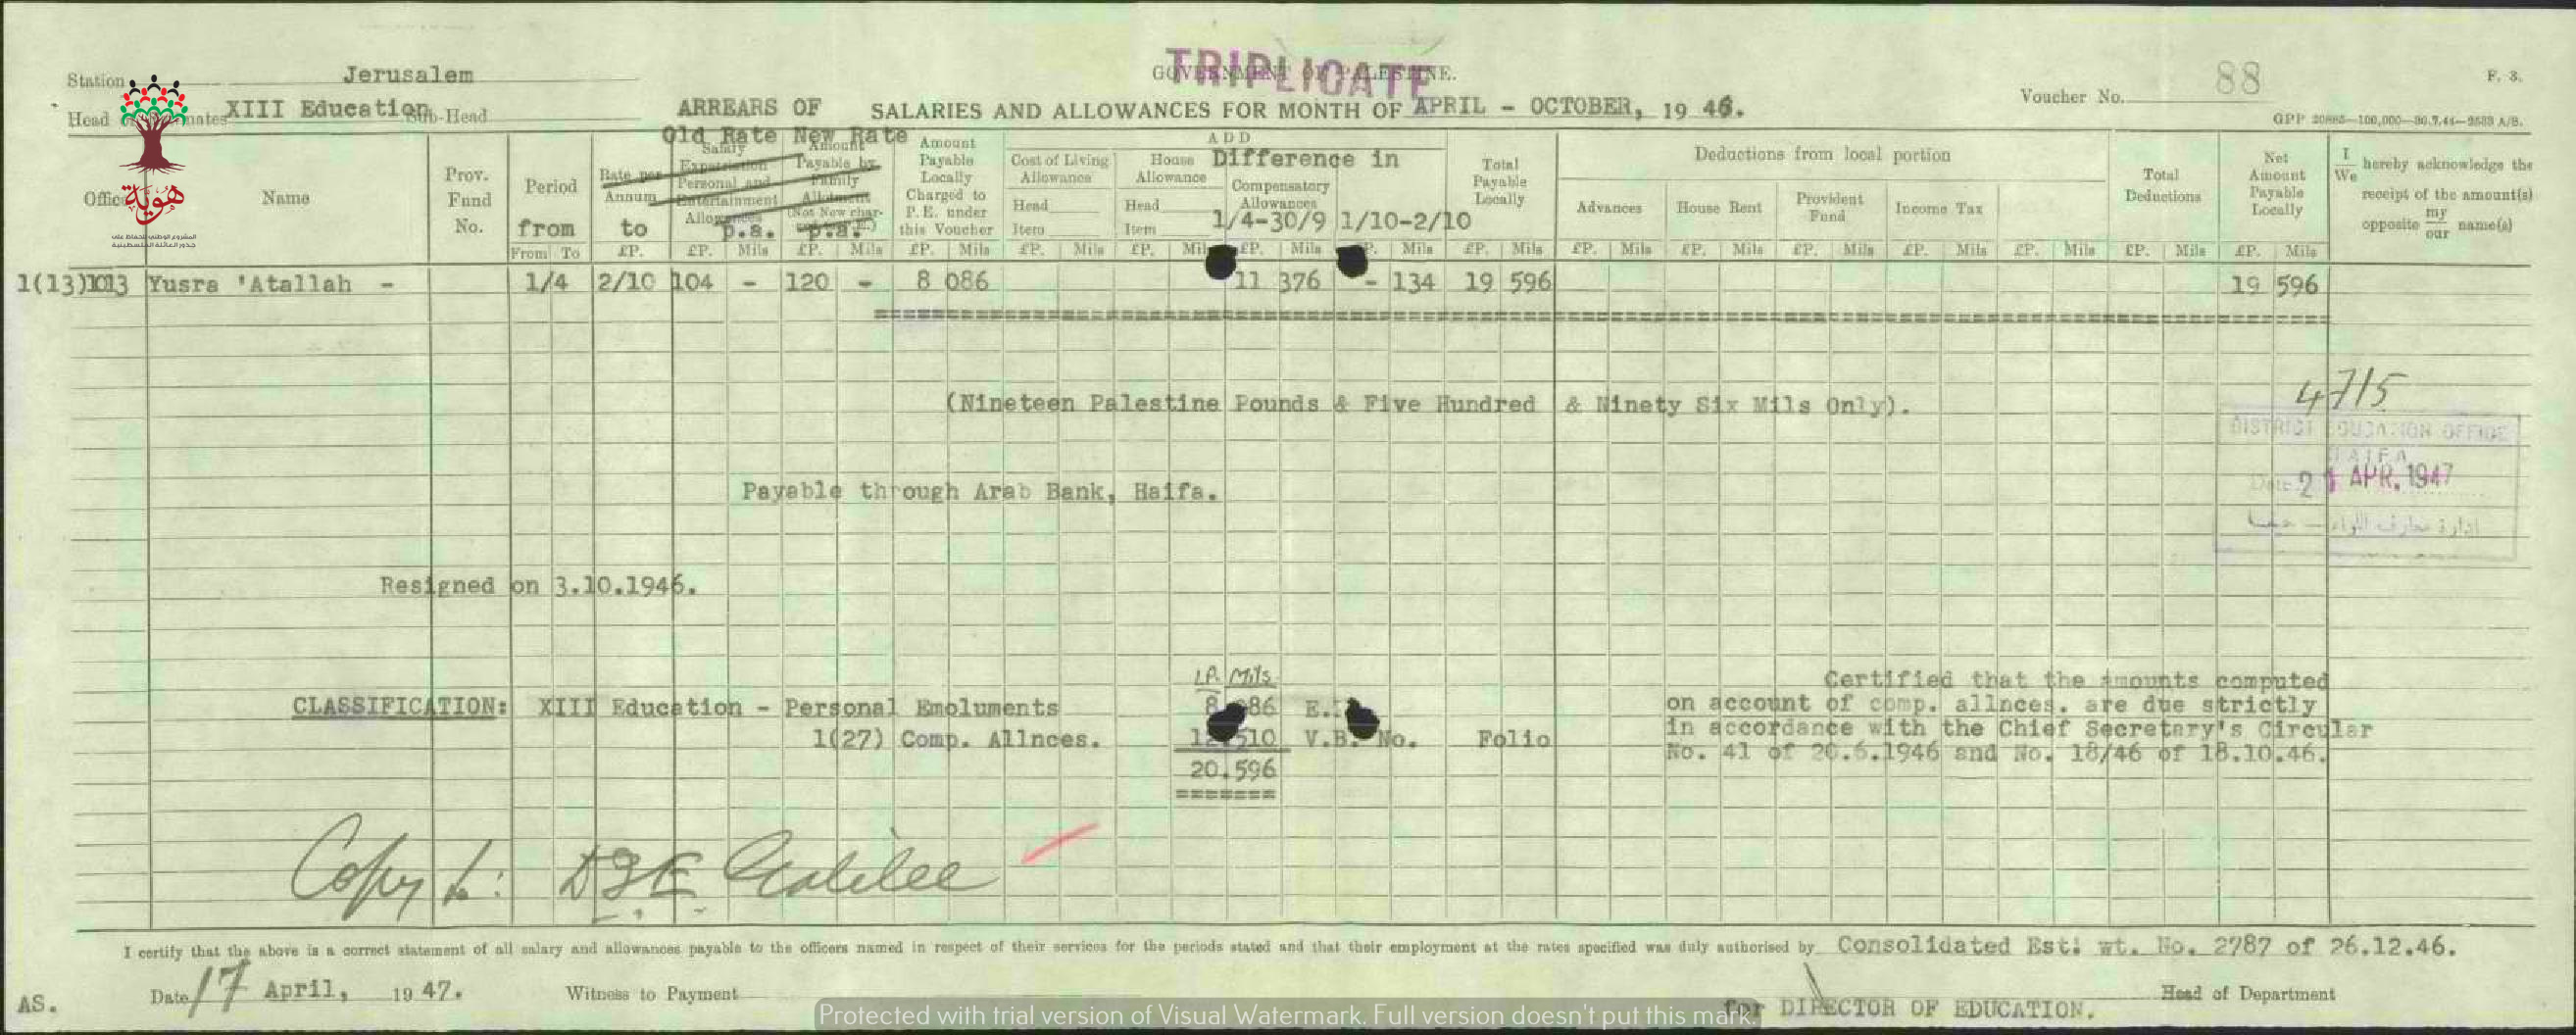 TRIPLICATE
GOVERNMENT OF PALESTINE.
Station Jerusalem
88
Voucher No.
F. 3.
Head XIII Education Sub-Head
ARREARS OF SALARIES AND ALLOWANCES FOR MONTH OF APRIL - OCTOBER, 1946.
GPP 20885—100,000—30.7.44—2533 A/B.
هوية
المشروع الوطني للحفاظ على
جذور العائلة الفلسطينية
Old Rate New Rate
Name
Prov. Fund No.
Period
from to
From To
Rate per Annum
£P.
Salary Expatriation Personal and Entertainment Allowances
p.a.
£P. Mils
Amount Payable by Family Allotment
p.a.
£P. Mils
Amount Payable Locally Charged to P.E. under this Voucher
£P. Mils
ADD
Cost of Living Allowance
Head
Item
£P. Mils
House Allowance
Head
Item
£P. Mils
Difference in
Compensatory Allowances
1/4-30/9 1/10-2/10
£P. Mils £P. Mils
Total Payable Locally
£P. Mils
Deductions from local portion
Advances
£P. Mils
House Rent
£P. Mils
Provident Fund
£P. Mils
Income Tax
£P. Mils
£P. Mils
Total Deductions
£P. Mils
Net Amount Payable Locally
£P. Mils
I We hereby acknowledge the
receipt of the amount(s)
opposite my our name(s)
1(13)1013 Yusra 'Atallah - 1/4 2/10 104 - 120 - 8 086 11 376 - 134 19 596 19 596
(Nineteen Palestine Pounds & Five Hundred & Ninety Six Mils Only).
4715
DISTRICT EDUCATION OFFICE
HAIFA
Date 21 APR. 1947
إدارة معارف اللواء - حيفا
Payable through Arab Bank, Haifa.
Resigned on 3.10.1946.
LP. Mils
CLASSIFICATION: XIII Education - Personal Emoluments 8.086
1(27) Comp. Allnces. 12.510 V.B. No. Folio
20.596
Certified that the amounts computed
on account of comp. allnces. are due strictly
in accordance with the Chief Secretary's Circular
No. 41 of 20.6.1946 and No. 18/46 of 18.10.46.
Copy to: D.I.E Galilee
I certify that the above is a correct statement of all salary and allowances payable to the officers named in respect of their services for the periods stated and that their employment at the rates specified was duly authorised by Consolidated Est. wt. No. 2787 of 26.12.46.
AS.
Date 17 April, 1947.
Witness to Payment
for DIRECTOR OF EDUCATION.
Head of Department
Protected with trial version of Visual Watermark. Full version doesn't put this mark.